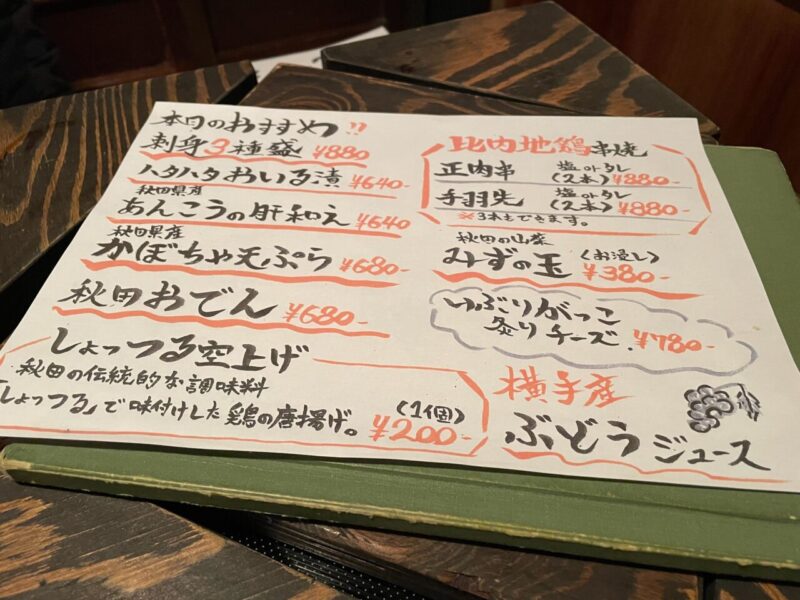 本日のおすすめ!!
刺身3種盛 ¥880
ハタハタおいる漬 ¥640-
秋田県産
あんこうの肝和え ¥640
秋田県産
かぼちゃ天ぷら ¥680-
秋田おでん ¥680-
しょっつる空上げ
秋田の伝統的な調味料
「しょっつる」で味付けした鶏の唐揚げ。
(1個)
¥200-
比内地鶏串焼
正肉串 塩orタレ (2本) ¥880-
手羽先 塩orタレ (2本) ¥880-
※3本もできます。
秋田の山菜
みずの玉 (お浸し)
¥380-
いぶりがっこ
炙りチーズ. ¥780-
横手産
ぶどうジュース